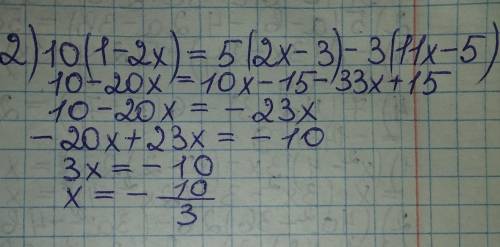 2) 10(1-2x) = 5(2x-3)-3(11x-5)
10-20x = 10x-15-33x+15
10-20x = -23x
-20x+23x = -10
3x = -10
x = - 10/3